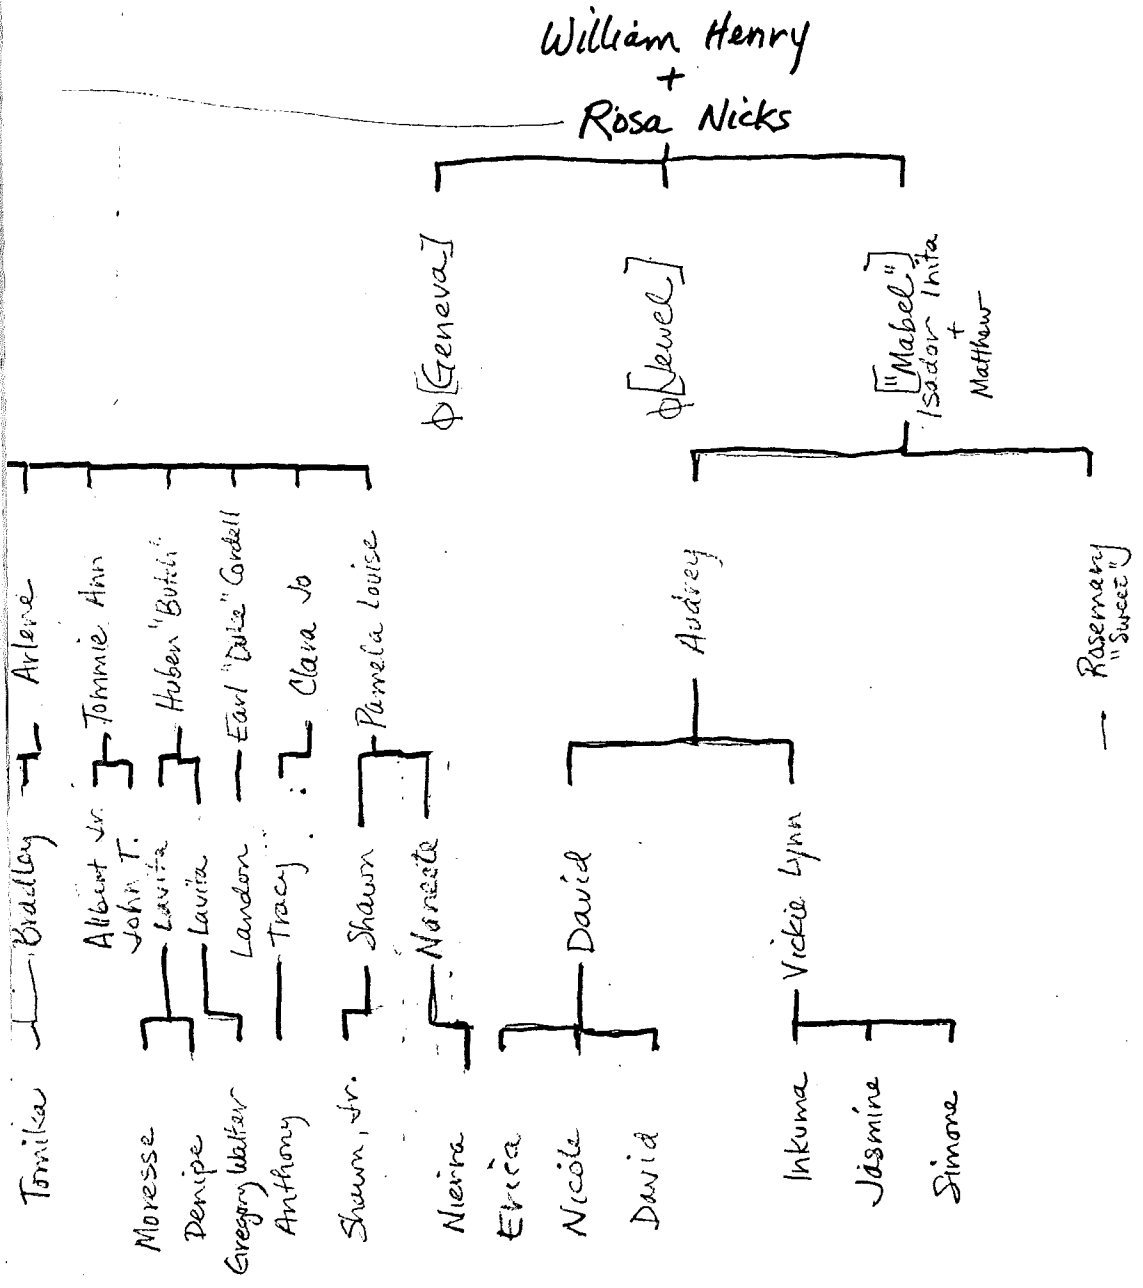 William Henry
+
Rosa Nicks
ϕ[Geneva]
ϕ[Jewel]
["Mabel"]
Isador Inita
+
Matthew
Arlene
Tommie Ann
Huben "Butch"
Earl "Duke" Cordell
Clara Jo
Pamela Louise
Audrey
— Rosemary
"Sweet"
Bradley
Albert Jr.
John T.
Lavita
Lavita
Landon
Tracy
Shawn
David
Vickie Lynn
Tomika
Moresse
Denipe
Gregory Walter
Anthony
Shawn, Jr.
Nierra
Erica
Nicole
David
Inkuma
Jasmine
Simone